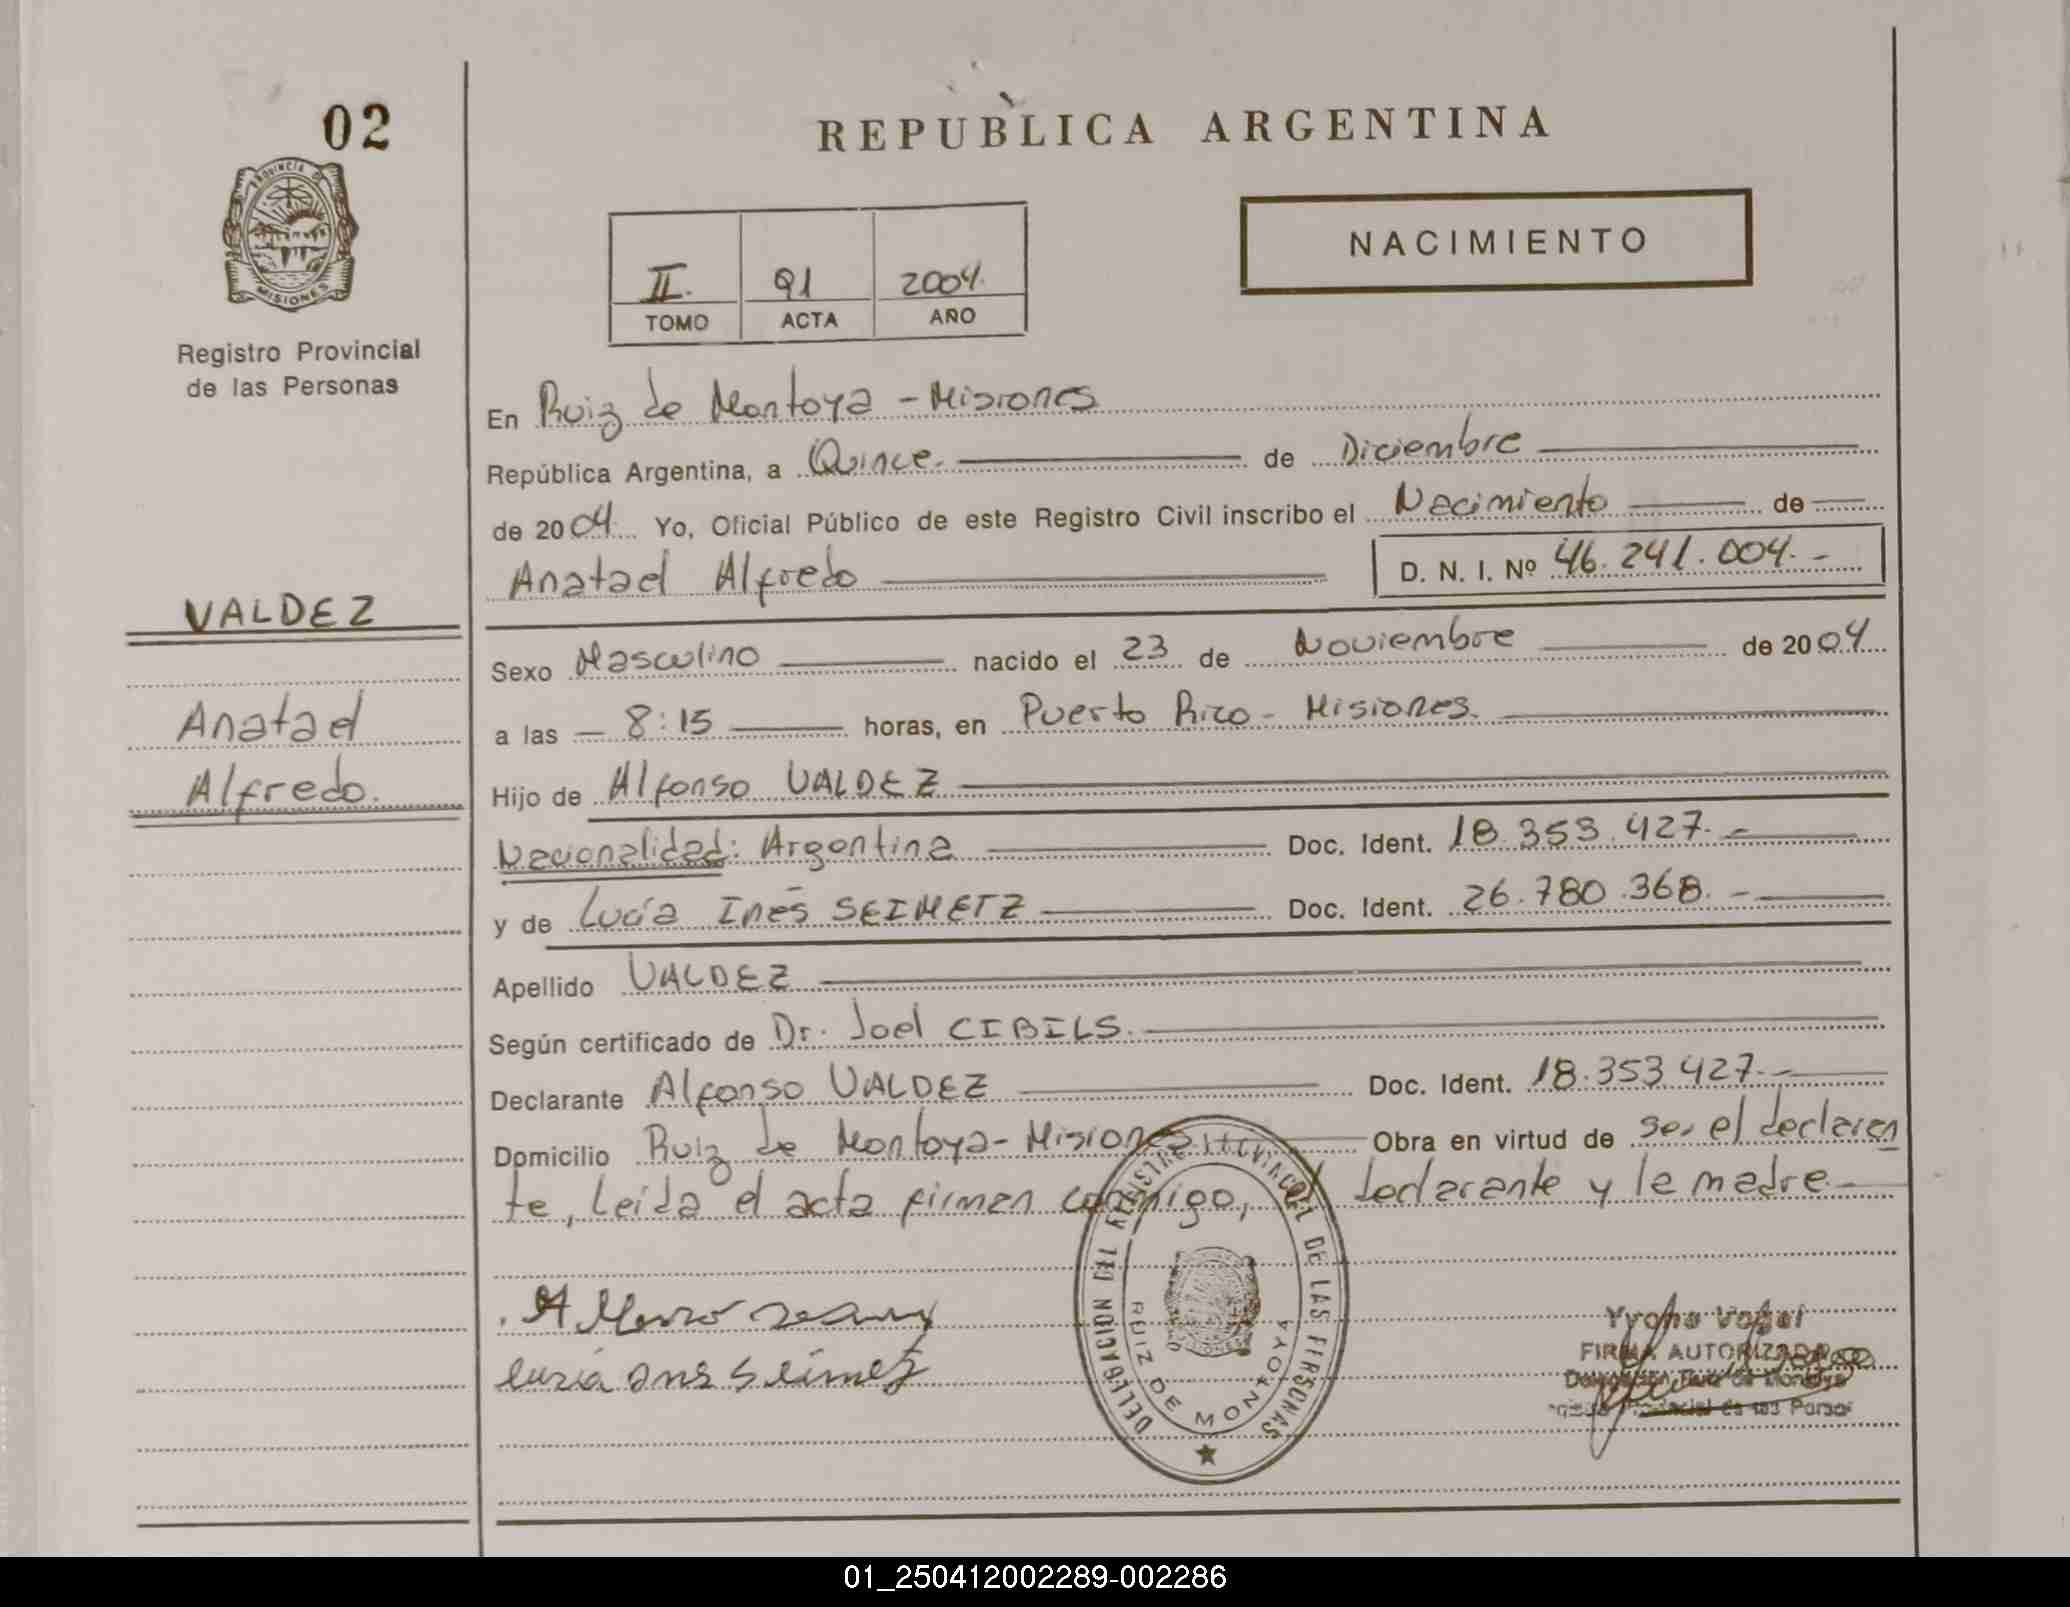 02
PROVINCIA DE
MISIONES
Registro Provincial
de las Personas
REPUBLICA ARGENTINA
II. 91 2004.
TOMO ACTA AÑO
NACIMIENTO
En Ruiz de Montoya - Misiones
República Argentina, a Quince. de Diciembre
de 2004. Yo, Oficial Público de este Registro Civil inscribo el Nacimiento de
Anatael Alfredo D. N. I. Nº 46.241.004.-
VALDEZ
Anatael
Alfredo.
Sexo Masculino nacido el 23 de Noviembre de 2004
a las - 8:15 horas, en Puerto Rico - Misiones.
Hijo de Alfonso VALDEZ
Nacionalidad: Argentina Doc. Ident. 18.353.427.-
y de Lucía Inés SEIMETZ Doc. Ident. 26.780.368.-
Apellido VALDEZ
Según certificado de Dr. Joel CIBILS.
Declarante Alfonso VALDEZ Doc. Ident. 18.353.427.-
Domicilio Ruiz de Montoya - Misiones Obra en virtud de ser el declaran
te, Leída el acta firman conmigo, el declarante y la madre.
DELEGACION DEL REGISTRO PROVINCIAL DE LAS PERSONAS
RUIZ DE MONTOYA
Lucia Ines Seimetz
Yvone Vogel
FIRMA AUTORIZADA
Delegación Ruiz de Montoya
Provincial de las Person
01_250412002289-002286